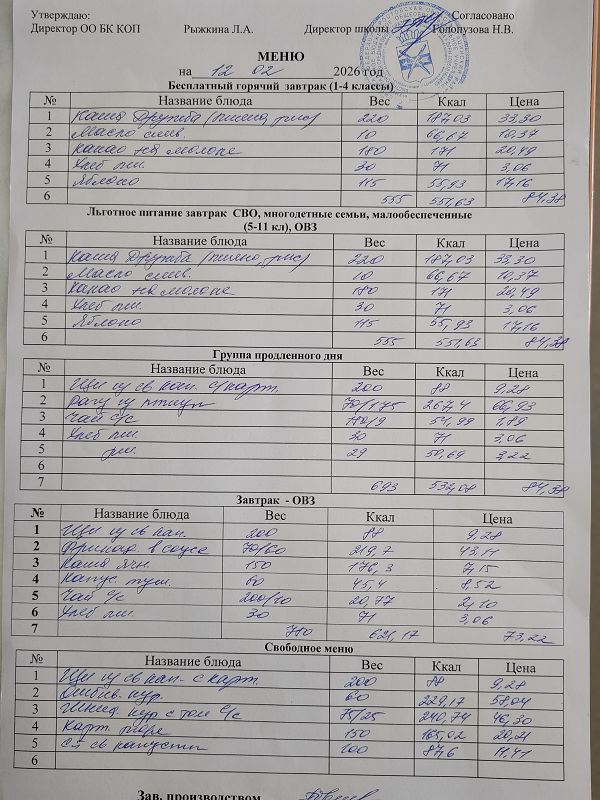 Утверждаю: Согласовано
Директор ОО БК КОП Рыжкина Л.А. Директор школы Голопузова Н.В.
МЕНЮ
на 12 02 2026 год
Бесплатный горячий завтрак (1-4 классы)
№ Название блюда Вес Ккал Цена
1 Каша Дружба (пшено, рис) 220 187,03 33,30
2 Масло слив. 10 66,67 10,37
3 Какао на молоке 180 171 20,49
4 Хлеб пш. 30 71 3,06
5 Яблоко 115 55,93 17,16
6 555 551,63 84,38
Льготное питание завтрак СВО, многодетные семьи, малообеспеченные
(5-11 кл), ОВЗ
№ Название блюда Вес Ккал Цена
1 Каша Дружба (пшено, рис) 220 187,03 33,30
2 Масло слив. 10 66,67 10,37
3 Какао на молоке 180 171 20,49
4 Хлеб пш. 30 71 3,06
5 Яблоко 115 55,93 17,16
6 555 551,63 84,38
Группа продленного дня
№ Название блюда Вес Ккал Цена
1 Щи из св кап. с/карт. 200 88 9,28
2 Рагу из птицы 70/175 267,4 66,93
3 Чай с/с 54,99 1,89
4 Хлеб пш. 30 71 3,06
5 рж. 29 50,69 3,22
6
7 693 532,08 84,38
Завтрак - ОВЗ
№ Название блюда Вес Ккал Цена
1 Щи из св кап. 200 88 9,28
2 в соусе 70/60 219,7 43,11
3 Каша ячн. 150 176,3 7,15
4 Капус. туш. 60 45,4 8,52
5 Чай с/с 200/10 20,77 2,10
6 Хлеб пш. 30 71 3,06
7 780 621,17 73,22
Свободное меню
№ Название блюда Вес Ккал Цена
1 Щи из св кап- с карт. 200 88 9,28
2 Отбив. кур. 60 229,17 58,04
3 кур с том с/с 75/25 240,74 46,30
4 Карт. пюре 150 165,02 20,21
5 Сл св капусты 100 87,6 11,41
6
Зав. производством